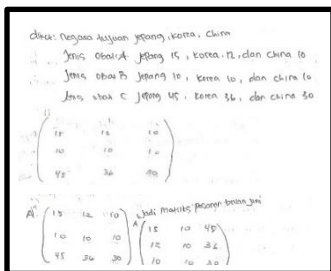 diket: negara tujuan jepang, korea, china
Jenis obat A Jepang 15, korea 12, dan china 10
Jenis obat B Jepang 10, korea 10, dan china 10
Jenis obat C Jepang 45, korea 36, dan china 30
15 12 10
10 10 12
45 36 30
A 15 12 10
10 10 10
45 36 30
Jadi matriks pesanan bulan juni
A 15 10 45
12 10 36
10 10 30